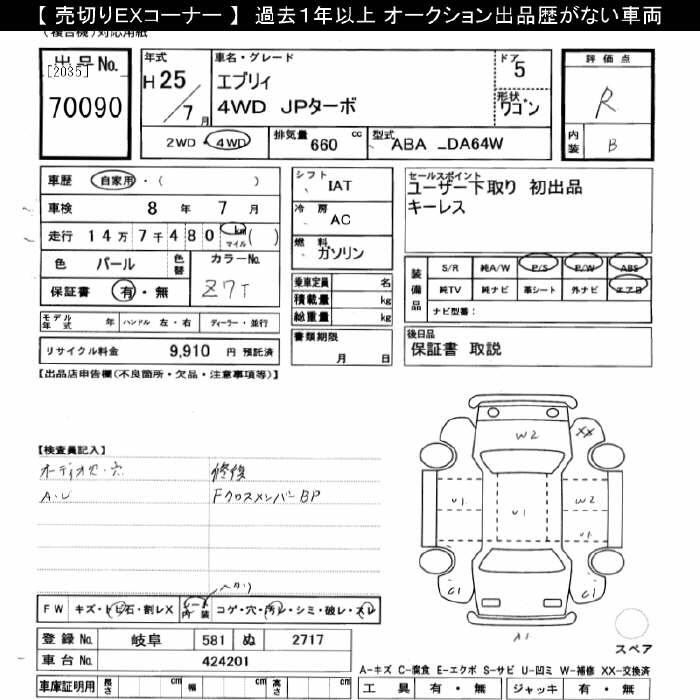 【 売切りEXコーナー 】 過去１年以上 オークション出品歴がない車両
(複合機)対応用紙
出品No.
[2035]
70090
年式
H 25
7 月
車名・グレード
エブリィ
4WD JPターボ
ドア
5
形状
ワゴン
2WD・4WD
排気量 660 cc
型式 ABA _DA64W
評価点
R
内装
B
車歴 自家用・( )
車検 8 年 7 月
走行 14万7千480 km マイル ( )
色 パール 色替 カラーNo.
保証書 有・無 Z7T
モデル年式 年 ハンドル 左・右 ディーラー・並行
リサイクル料金 9,910 円 預託済
シフト
IAT
冷房
AC
燃料
ガソリン
乗車定員 名
積載量 kg
総重量 kg
書類期限
月 日
セールスポイント
ユーザー下取り 初出品
キーレス
装備品
S/R 純A/W P/S P/W ABS
純TV 純ナビ 革シート 外ナビ エアB
ナビ型番：
後日品
保証書 取説
【出品店申告欄(不良箇所・欠品・注意事項等)】
【検査員記入】
オーディオセ・穴
A・U
修復
Fクロスメンバー BP
W2
XX
U1
U1
W2
U1
C1
C1
A1
スペア
FW キズ・トビ石・割レX
シート
内装
コゲ・穴・汚レ・シミ・破レ・スレ
登録No. 岐阜 581 ぬ 2717
車台No. 424201
車庫証明用 長さ cm 幅 cm 高さ cm
A-キズ C-腐食 E-エクボ S-サビ U-凹ミ W-補修 XX-交換済
工具 有・無 ジャッキ 有・無